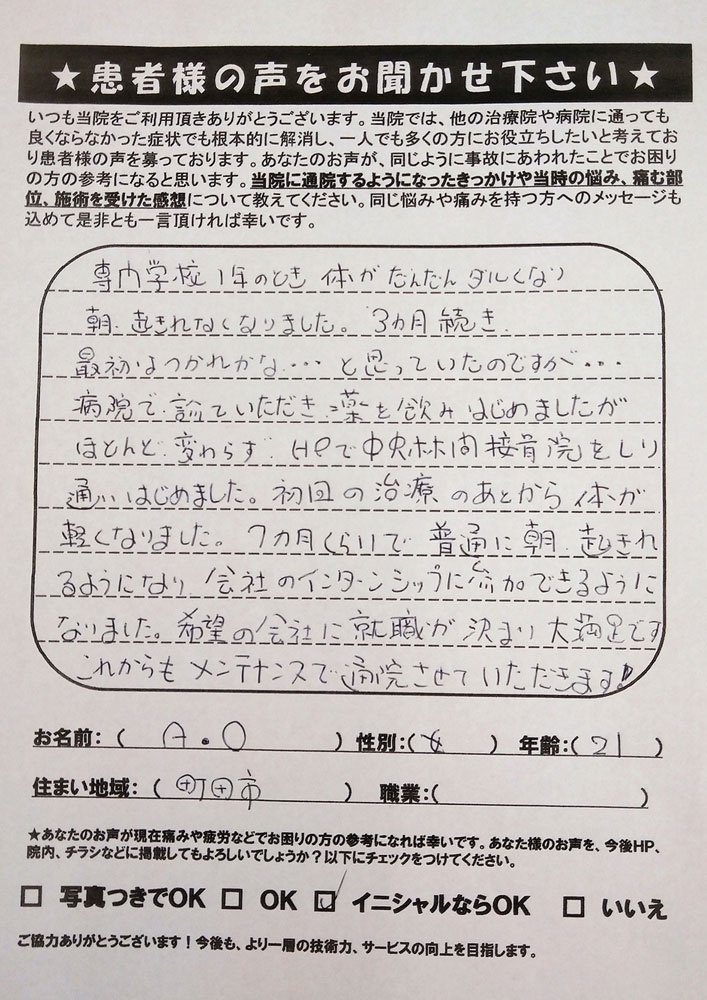 ★患者様の声をお聞かせ下さい★
いつも当院をご利用頂きありがとうございます。当院では、他の治療院や病院に通っても
良くならなかった症状でも根本的に解消し、一人でも多くの方にお役立ちしたいと考えてお
り患者様の声を募っております。あなたのお声が、同じように事故にあわれたことでお困り
の方の参考になると思います。当院に通院するようになったきっかけや当時の悩み、痛む部
位、施術を受けた感想について教えてください。同じ悩みや痛みを持つ方へのメッセージも
込めて是非とも一言頂ければ幸いです。
専門学校1年のとき 体が だんだん ダルくなり
朝.起きれなくなりました。3カ月 続き.
最初はつかれかな・・・と思っていたのですが・・・
病院で.診ていただき.薬を飲みはじめましたが
ほとんど.変わらず.HPで中央林間接骨院をしり
通いはじめました。初回の治療のあとから体が
軽くなりました。7カ月くらいで 普通に朝.起きれ
るようになり 会社のインターンシップに参加できるように
なりました。希望の会社に就職が決まり大満足です
これからもメンテナンスで通院させていただきます!
お名前:( A.O ) 性別:(女 ) 年齢:( 21 )
住まい地域:( 町田市 ) 職業:( )
★あなたのお声が現在痛みや疲労などでお困りの方の参考になれば幸いです。あなた様のお声を、今後HP、
院内、チラシなどに掲載してもよろしいでしょうか?以下にチェックをつけてください。
□ 写真つきでOK □ OK ☑ イニシャルならOK □ いいえ
ご協力ありがとうございます!今後も、より一層の技術力、サービスの向上を目指します。